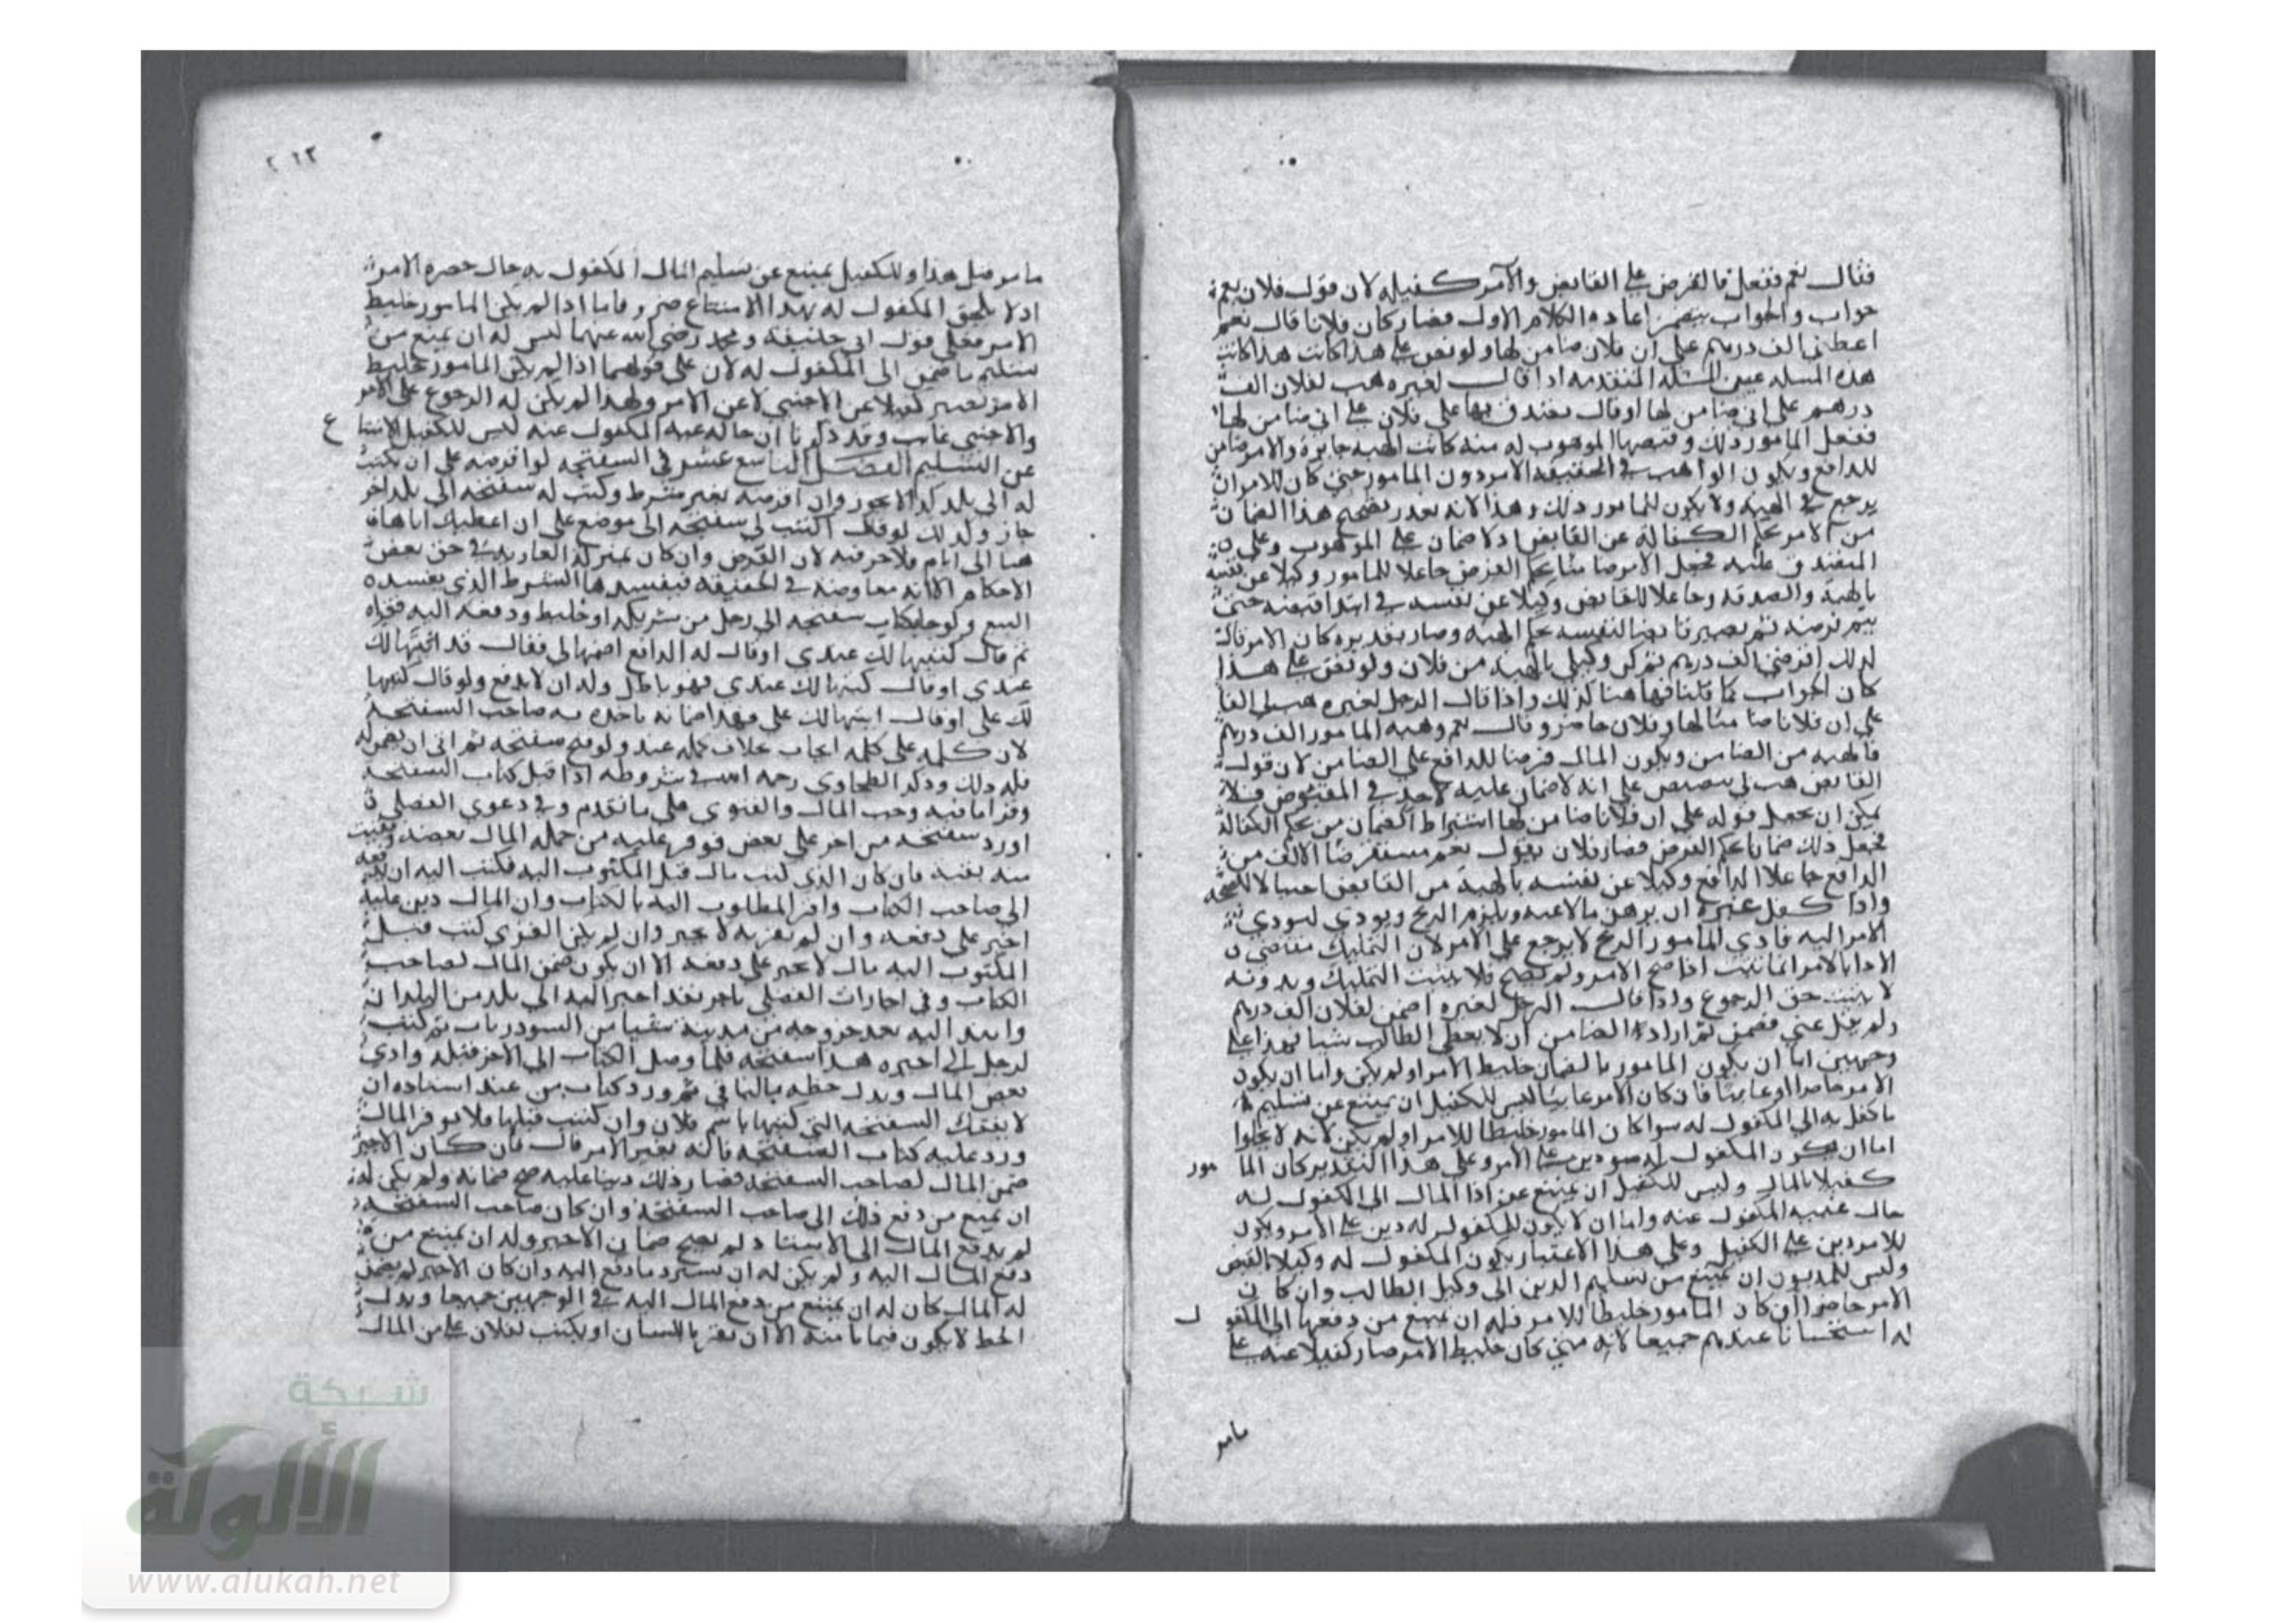 فقال نعم ففعل فالقرض على القابض والآمر كفيله لان قول فلان نعم
جواب والجواب يتضمن اعادة الكلام الاول فصار كان فلانا قال نعم
اعطني الف درهم على ان فلان ضامن لها ولو نص على هذا كانت هذا كانت
هذه المسله عين المسئلة المتقدمه اذا قال لغيره هب لفلان الف
درهم على اني ضامن لها او قال تصدق بها على فلان على اني ضامن لها
ففعل المامور ذلك وقبضها الموهوب له منه كانت الهبه جايزة والامر ضامن
للدافع ويكون الواهب في الحقيقة الامر دون المامور حتى كان للامر ان
يرجع في الهبه ولا يكون للمامور ذلك وهذا لانه تعذر تصحيح هذا الضمان
من الامر بحكم الكفالة عن القابض اذ لا ضمان على الموهوب وعلى
المتصدق عليه فجعل الامر ضامنا بحكم القرض جاعلا للمامور وكيلا عن نفسه
بالهبة والصدقه وجاعلا للقابض وكيلا عن نفسه في ابتدا قبضه حتى
يتم قرضه ثم يصير قابضا لنفسه بحكم الهبه وصار تقديره كان الامر قال
لذلك اقرضني الف درهم ثم كن وكيلي بالهبة من فلان ولو نص على هذا
كان الجواب كما قلنا فهاهنا كذلك واذا قال الرجل لغيره هب لي الفا
على ان فلانا ضامنا لها وفلان حاضر وقال نعم وهبه المامور الف درهم
فالهبه من الضامن ويكون المال قرضا للدافع على الضامن لان قول
القابض هب لي تنصيص على انه لاضمان عليه لاحد في المقبوض فلا
يمكن ان يجعل قوله على ان فلانا ضامن لها اشتراط الضمان من بحكم الكفالة
فجعل ذلك ضمانا بحكم القرض فصار فلان بقوله نعم مستقرضا الالف من
الدافع جاعلا الدافع وكيلا عن نفسه بالهبة من القابض احتيالا للصحة
واذا كفل غيره ان يرهن مالا عنه ويلتزم الربح ويودي ليودي
الامر اليه فادي المامور الربح لا يرجع على الامر لان التمليك مقتضى
الادا بالامر انما تثبت اذا صح الامر ولم يصح فلا يثبت التمليك وبدونه
لا يثبت حق الرجوع واذا قال الرجل لغيره اضمن لفلان الف درهم
ولم يقل عني فضمن ثم اراد الضامن ان لا يعطي الطالب شيا فهذا على
وجهين اما ان يكون المامور بالضمان خليط الامر او لم يكن واما ان يكون
الامر حاضرا او غايبا فان كان الامر غايبا ليس للكفيل ان يمتنع عن تسليم
ما كفل به الى المكفول له سوا كان المامور خليطا للامر او لم يكن لانه لا يخلوا
اما ان يكون المكفول له دين على الامر وعلى هذا التقدير كان الما مور
كفيلا بالمال وليس للكفيل ان يمتنع عن اذا المال الى المكفول له
حال غيبه المكفول عنه واما ان لا يكون للمكفول له دين على الامر ويكون
للامر دين على الكفيل وعلى هذا الاعتبار يكون المكفول له وكيلا بالقبض
وليس للمديون ان يمتنع من تسليم الدين الى وكيل الطالب وان كان
الامر حاضرا ان كان المامور خليطا للامر فله ان يمتنع من دفعها الى المكفو ل
له استحسانا عندهم جميعا لانه متى كان خليط الامر صار كفيلا عنه على
مامر
٢١٢
مامر قبل هذا وللكفيل يمتنع عن تسليم المال المكفول به حال حضرة الامر
اذ لا يلحق المكفول له بهذا الامتناع ضرر فاما اذا لم يكن المامور خليط
الامر فعلى قول ابي حنيفة ومحمد رضي الله عنهما ليس له ان يمتنع من
تسليم ما ضمن الى المكفول له لان على قولهما اذا لم يكن المامور خليط
الامر يصير كفيلا عن الاجنبي لا عن الامر ولهذا لم يكن له الرجوع على الامر
والاجنبي غايب وقد ذكرنا ان حالة غيبه المكفول عنه ليس للكفيل الامتنا ع
عن التسليم الفصل التاسع عشر في السفتجه لو اقرضه على ان يكتب
له الى بلد كذا لا يجوز وان اقرضه بغير شرط وكتب له سفتجه الى بلد اخر
جاز وكذلك لو قال اكتب لي سفتجه الى موضع على ان اعطيك اياها
هنا الى ايام فلا خير فيه لان القرض وان كان بمنزلة العاريه في حق بعض
الاحكام الا انه معاوضه في الحقيقه فيفسدها الشرط الذي يفسده
البيع ولو جا بكتاب سفتجه الى رجل من شريكه او خليط ودفعه اليه فقراه
ثم قال كتبتها لك عندي او قال له الدافع اضمنها لي فقال قد اثبتها لك
عندي او قال كتبتها لك عندي فهو باطل وله ان لا يدفع ولو قال كتبتها
لك على او قال اثبتها لك على فهذا ضمانه ياخذه به صاحب السفتجه
لان كلمة على كلمه ايجاب بخلاف كلمه عند ولو فتح سفتجه ثم ابى ان يضمن له
فله ذلك وذكر الطحاوي رحمه الله في شروطه اذا قبل كتاب السفتجه
وقرا مافيه وجب المال والفتوى على ما تقدم وفي دعوى الفضلي
اورد سفتجه من اخر على بعض فوفر عليه من جملة المال بعضه وبقيت
منه بقيه فان كان الذي كتب مال قبل المكتوب اليه فكتب اليه ان يدفعه
الى صاحب الكتاب واقر المطلوب اليه بالكتاب وان المال دين عليه
اجبر على دفعه وان لم يقر به لا يجبر وان لم يكن الذي كتب قبل
المكتوب اليه مال لا يجبر على دفعه الا ان يكون ضمن المال لصاحب
الكتاب وفي اجارات الفضلي تاجر نفذ اجيرا اليه الى بلد من البلدان
اليه بعد خروجه من مدينة ثم كتب
لرجل الى اجيره هذا سفتجه فلما وصل الكتاب الى الاجير قبله وادى
بعض المال وبذل خطه بالباقي ثم ورد كتاب من عند استاده ان
لا يقبل السفتجه التي كتبتها باسم فلان وان كنت قبلتها فلا توفر المال
ورد عليه كتاب السفتجه فانه بغير الامر قال فان كان الاجير
ضمن المال لصاحب السفتجه فصار ذلك دينا عليه صح ضمانه ولم يكن له
ان يمتنع من دفع ذلك الى صاحب السفتجه وان كان صاحب السفتجه
لم يدفع المال الى الاستاد لم يصح ضمان الاجير وله ان يمتنع من
دفع المال اليه ولم يكن له ان يسترد ما دفع اليه وان كان الاجير لم يضمن
له المال كان له ان يمتنع من دفع المال اليه في الوجهين جميعا وبذل
الخط لا يكون ضمانا منه الا ان يقر باللسان او يكتب لفلان على من المال
شبكة
الألوكة
www.alukah.net